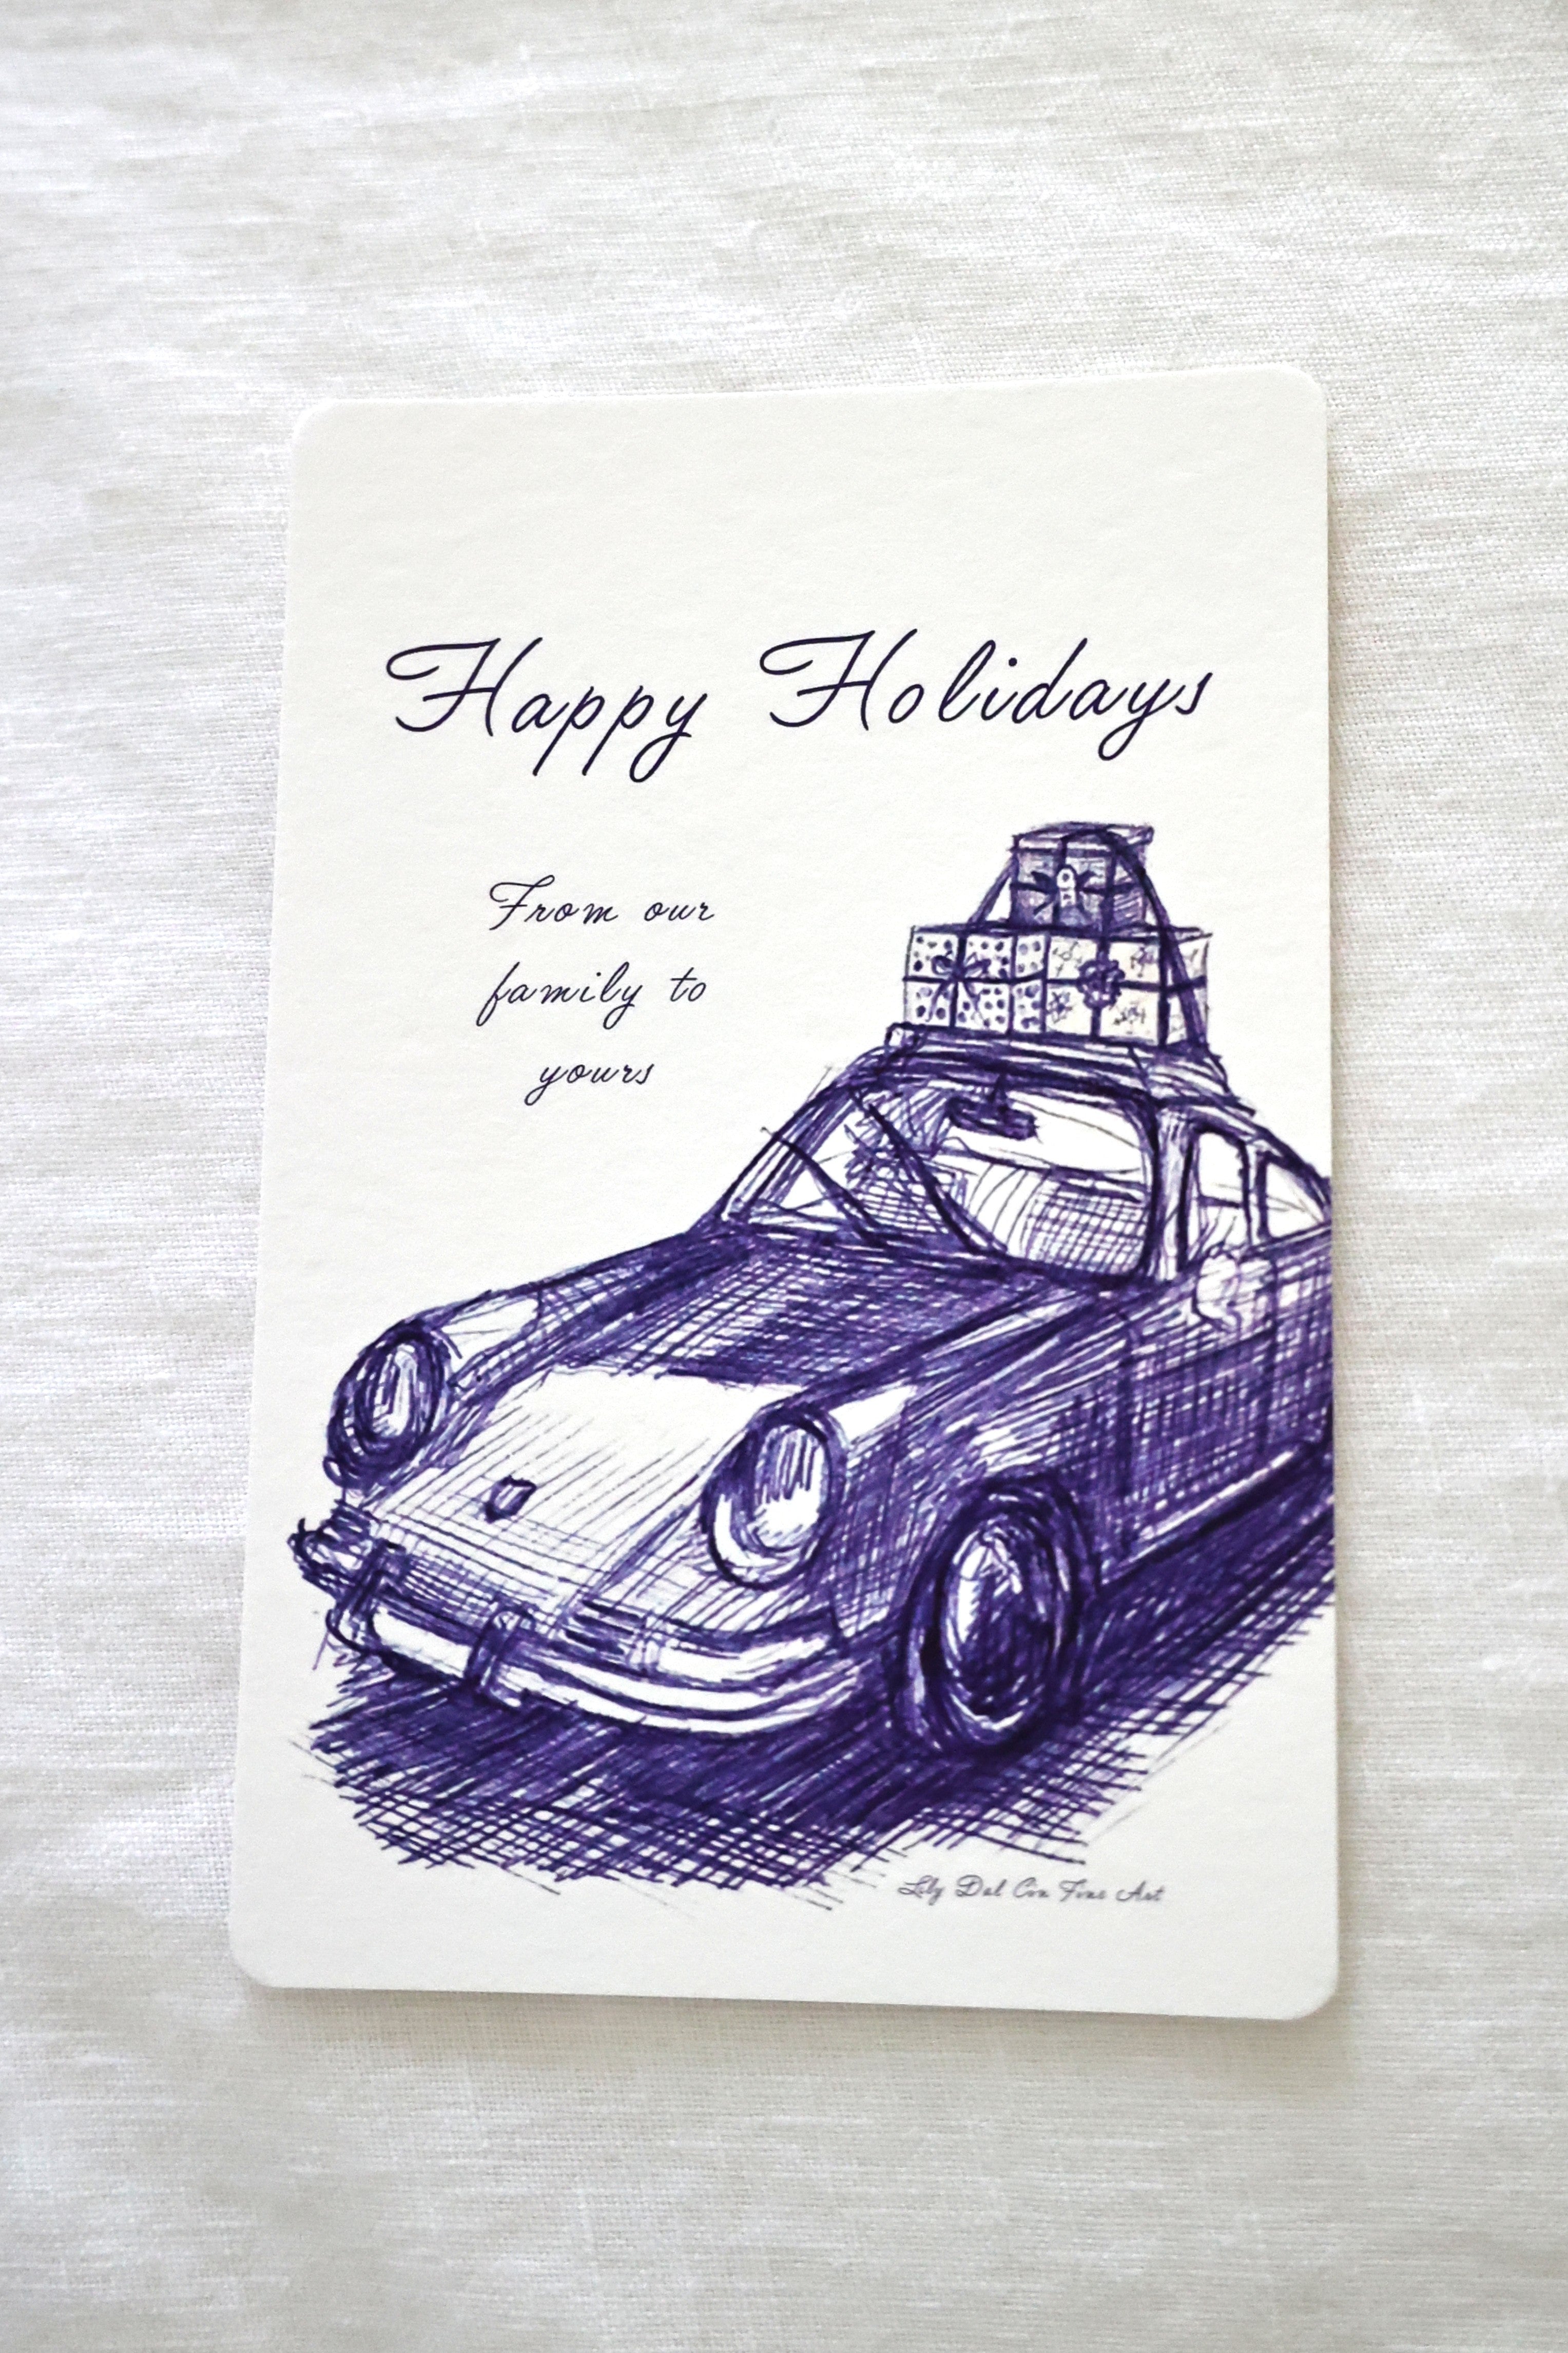 Happy Holidays
From our
family to
yours
Lily Dal Con Fine Art